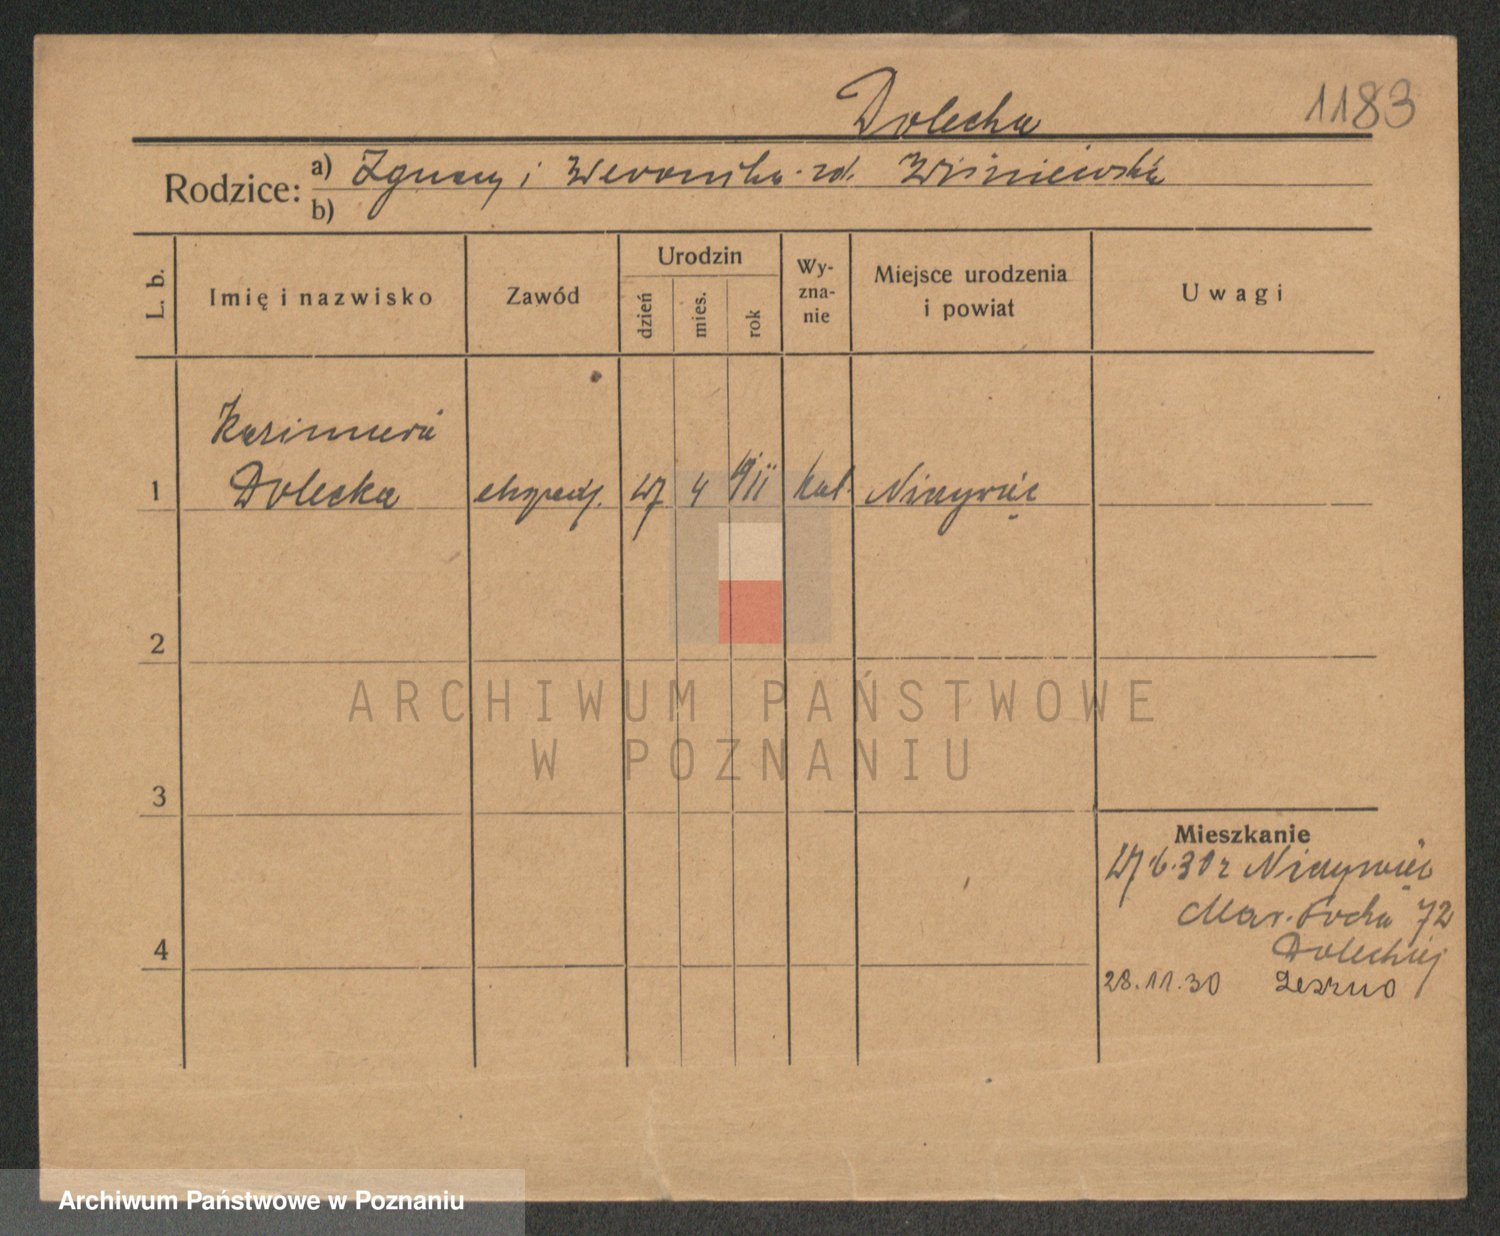 Dolecka 1183
Rodzice: a) Ignacy i Weronika zd. Wiśniewska
b)
L. b. Imię i nazwisko Zawód Urodzin dzień mies. rok Wyznanie Miejsce urodzenia i powiat Uwagi
Kazimiera
1 Dolecka ekspedj. 27 4 911 kat.
2
3
4
Mieszkanie
27.6.30 r
Mar. Focha 72
Doleckiej
28.11.30 Leszno
ARCHIWUM PAŃSTWOWE
W POZNANIU
Archiwum Państwowe w Poznaniu